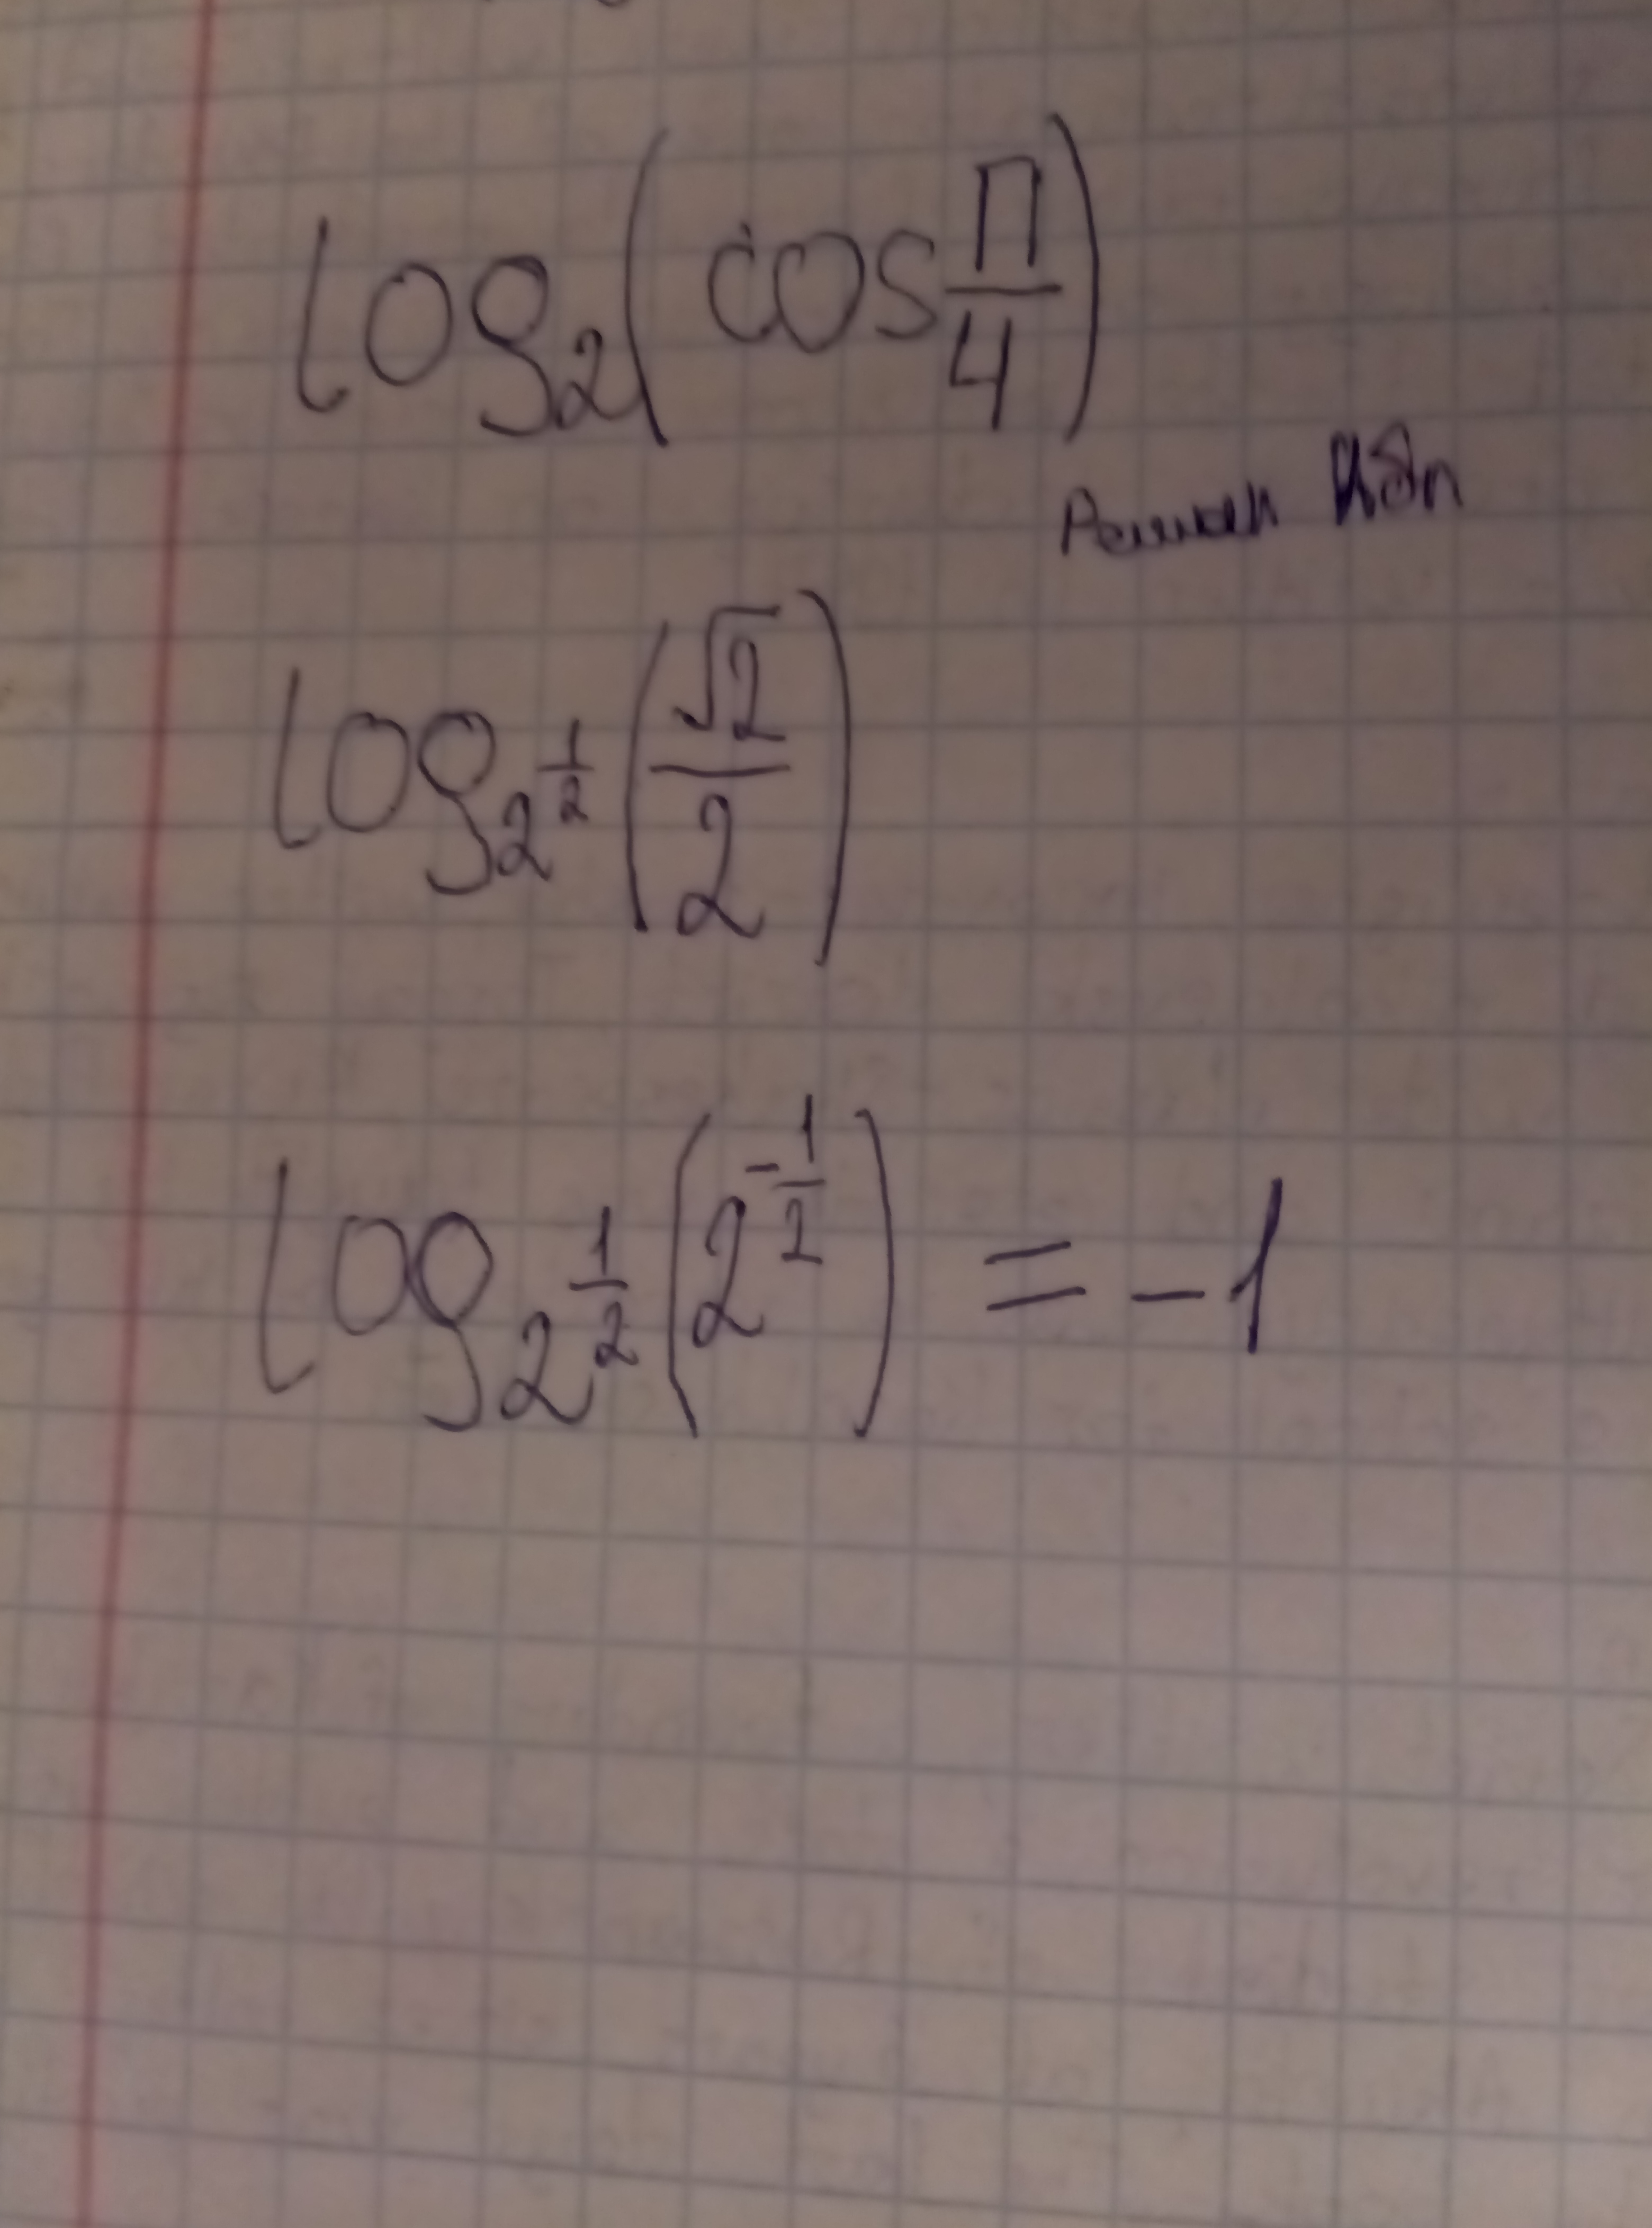 log₂(cos π/4)
log_{2^{1/2}}(√2/2)
log_{2^{1/2}}(2^{-1/2}) = -1